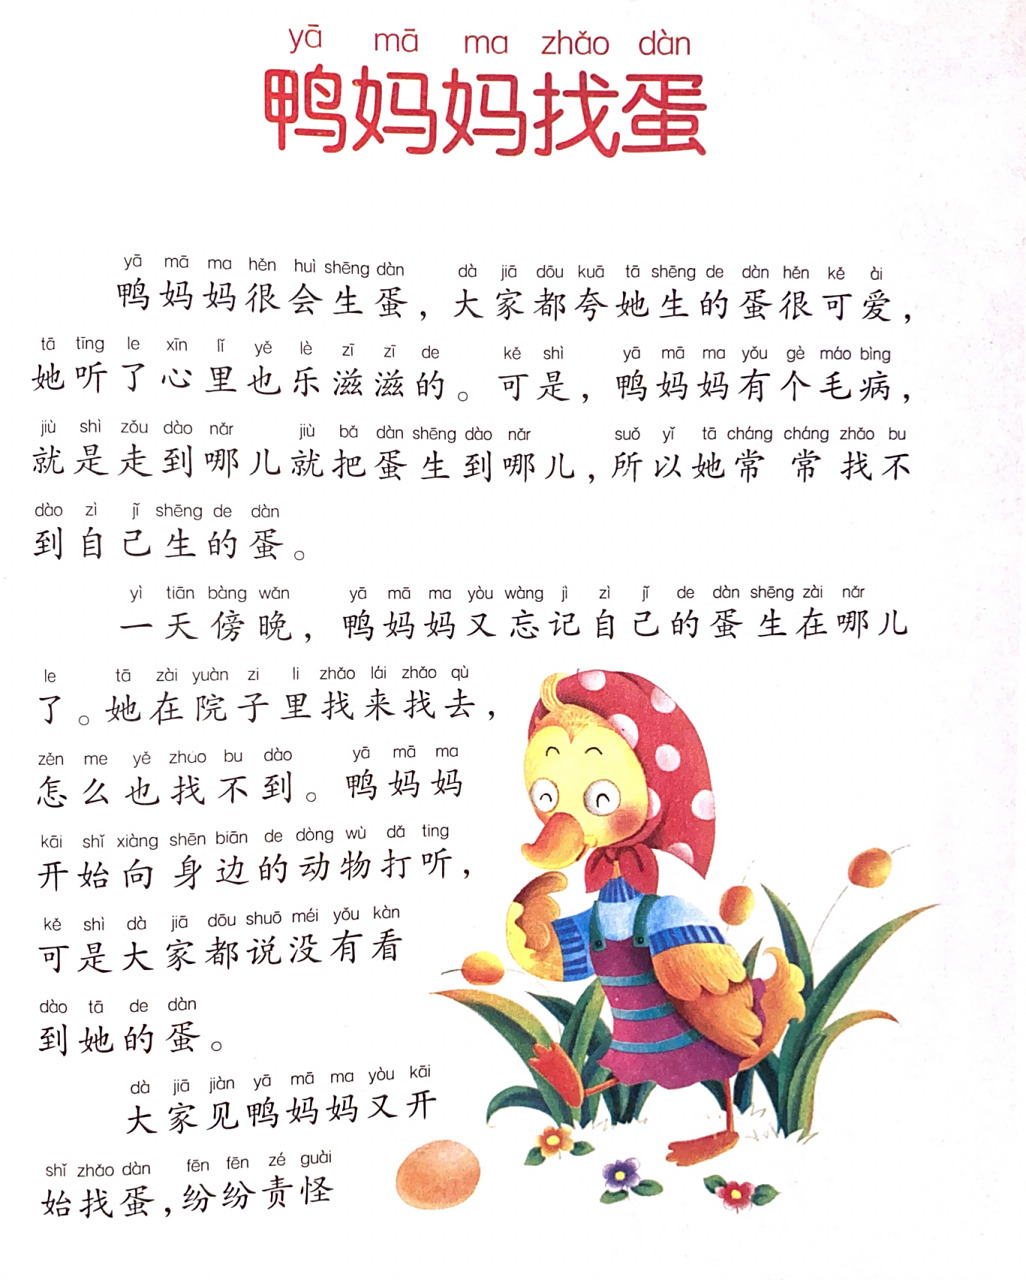 yā mā ma zhǎo dàn
鸭妈妈找蛋
yā mā ma hěn huì shēng dàn dà jiā dōu kuā tā shēng de dàn hěn kě ài
鸭妈妈很会生蛋，大家都夸她生的蛋很可爱，
tā tīng le xīn lǐ yě lè zī zī de kě shì yā mā ma yǒu gè máo bìng
她听了心里也乐滋滋的。可是，鸭妈妈有个毛病，
jiù shì zǒu dào nǎr jiù bǎ dàn shēng dào nǎr suǒ yǐ tā cháng cháng zhǎo bu
就是走到哪儿就把蛋生到哪儿，所以她常常找不
dào zì jǐ shēng de dàn
到自己生的蛋。
yì tiān bàng wǎn yā mā ma yòu wàng jì zì jǐ de dàn shēng zài nǎr
一天傍晚，鸭妈妈又忘记自己的蛋生在哪儿
le tā zài yuàn zi li zhǎo lái zhǎo qù
了。她在院子里找来找去，
zěn me yě zhǎo bu dào yā mā ma
怎么也找不到。鸭妈妈
kāi shǐ xiàng shēn biān de dòng wù dǎ ting
开始向身边的动物打听，
kě shì dà jiā dōu shuō méi yǒu kàn
可是大家都说没有看
dào tā de dàn
到她的蛋。
dà jiā jiàn yā mā ma yòu kāi
大家见鸭妈妈又开
shǐ zhǎo dàn fēn fēn zé guài
始找蛋，纷纷责怪